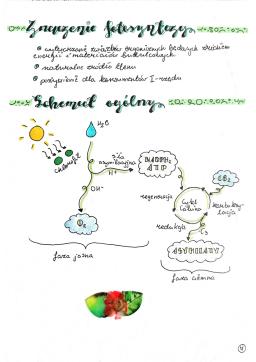 Znaczenie fotosyntezy
wytwarzanie związków organicznych będących źródłem
energii i materiałów budulcowych
naturalne źródło tlenu
pożywienie dla konsumentów I-rzędu
Schemat ogólny
H₂O
chlorofil
siła
asymilacyjna
H⁺
NADPH₂
ATP
CO₂
OH⁻
regeneracja
Cykl
Calvina
karboksy-
lacja
O₂
redukcja
C₃
faza jasna
faza ciemna